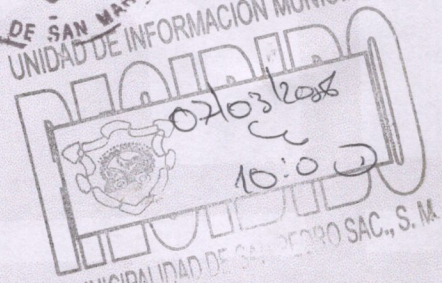 DE SAN MAR
UNIDAD DE INFORMACIÓN MUNICI
RECIBIDO
07/03/2008
10:00
MUNICIPALIDAD DE SAN PEDRO SAC., S. M.